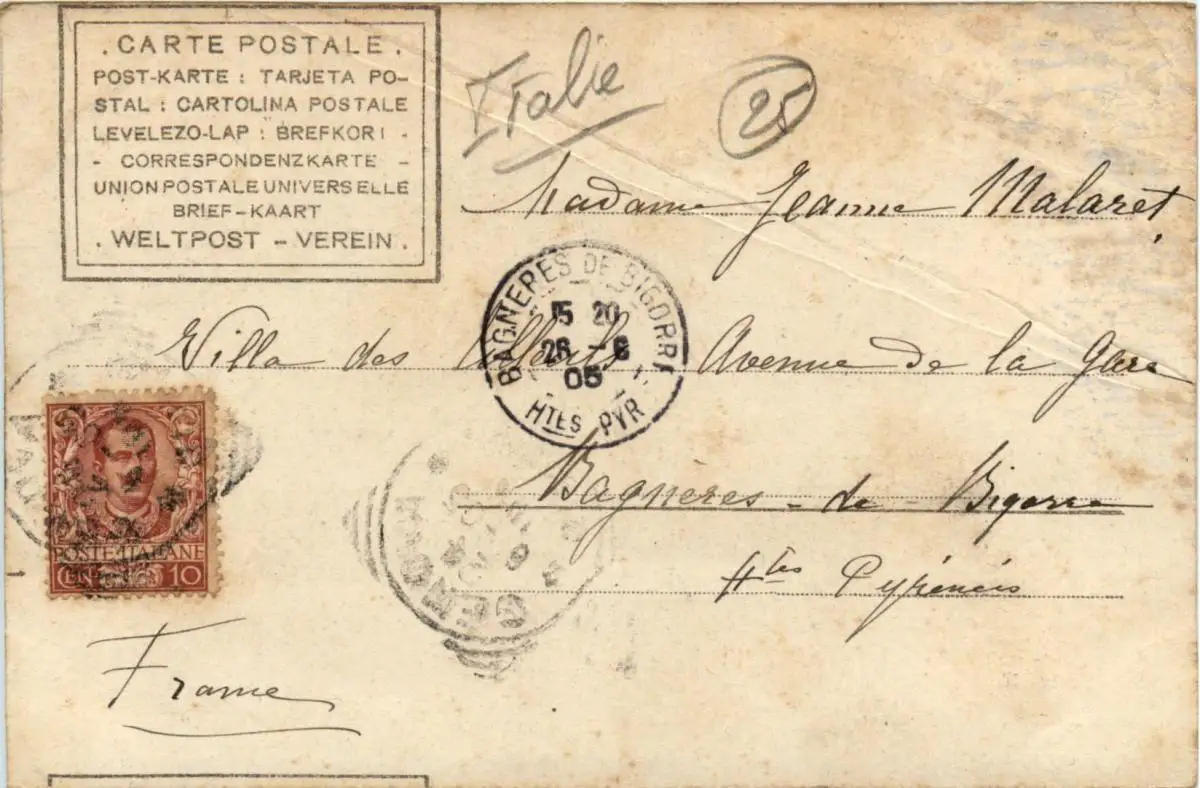 . CARTE POSTALE .
POST-KARTE : TARJETA PO-
STAL : CARTOLINA POSTALE
LEVELEZO-LAP : BREFKORT -
- CORRESPONDENZKARTE -
UNION POSTALE UNIVERSELLE
BRIEF-KAART
. WELTPOST - VEREIN .
Italie
25
Madame Jeanne Malaret
BAGNERES DE BIGORRE
15 20
26 - 6
05
HTES PYR
Villa des Avenue de la Gare
Bagneres - de - Bigorre
Htes Pyrénées
POSTE ITALIANE
10
GENOVA
France